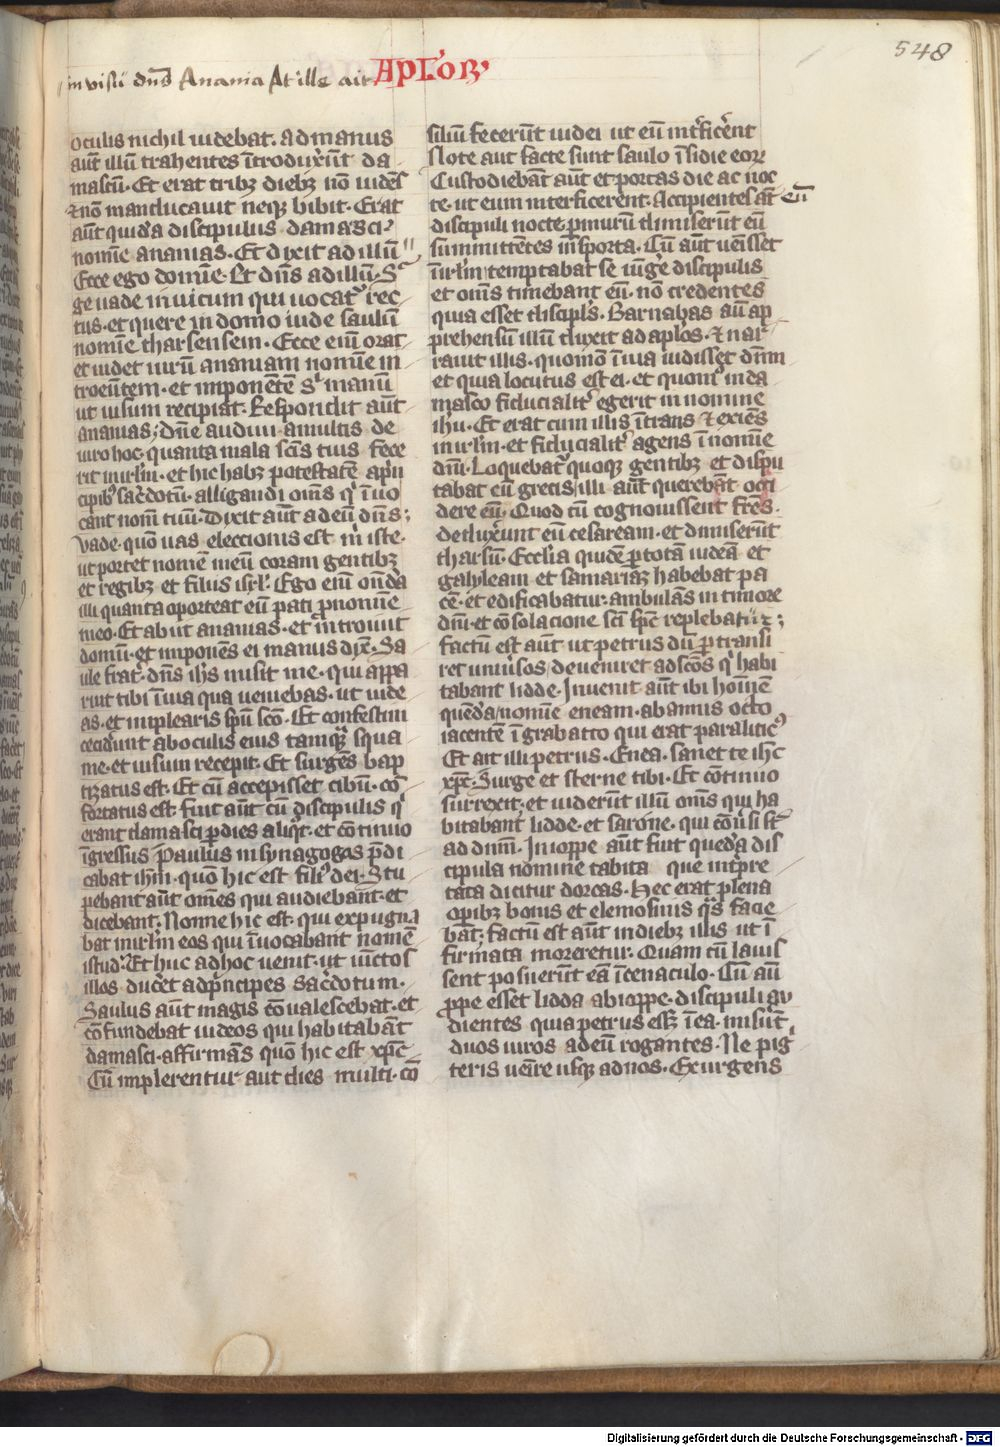 548
in visu dn̄s Anania At ille ait Apl'oꝝ
oculis nichil uidebat. ad manus
aūt illū trahentes ītrodux̄ūt da
mascū. Et erat tribꝫ diebꝫ nō uidēs
⁊ nō manducauit neqꝫ bibit. Erat
aūt quidā discipulus damasci
nomīe ananias. Et dixit ad illū
Ecce ego domīe. Et dn̄s ad illū. Sᷓ
ge uade in uicum qui uocat᷑ rec
tus. et quere in domo iude saulū
nomīe tharsensem. Ecce eni᷑ orat
et uidet uirū ananiam nomīe in
troeūtem. et imponētē sⁱ manū
ut uisum recipiat. Respondit aūt
ananias; dn̄e audiui a multis de
uiro hoc. quanta mala sc̄is tuis fece
rit in irl̄m. et hic habꝫ potestatē a pⁱn
cipibꝫ sac̄dotū. alligandi om̄s qⁱ īuo
cant nom̄ tuū. Dixit aūt ad eū dn̄s;
Vade. quō uas eleccionis est mⁱ iste.
ut portet nomē meū coram gentibꝫ
et regibꝫ et filiis isrl̄. Ego eni᷑ on̄da
illi quanta oporteat eū pati ꝓ nomīe
meo. Et abiit ananias. et ītroiuit
domū. et imponēs ei manus dix̄. Sa
ule frat̄. dn̄s ih̄s misit me. qui appa
ruit tibi ī uia qua ueniebas. ut uide
as. et implearis sp̄u sc̄o. Et confestim
cecid̄unt ab oculis eius tamqᷓ squa
me. et uisum recepit. Et surgēs bap
tizatus est. Et cū accepisset cibū. cō
fortatus est. fuit aūt cū discipulis qⁱ
erant damasci ꝑ dies aliqͦt. et cōtinuo
īgressus Paulus in synagogas p̄di
cabat ih̄m. quō hic est filiꝰ dei. Stu
pebant aūt om̄es qui audiebant. et
dicebant. Nonne hic est. qui expugna
bat in irl̄m eos qui īuocabant nomē
istud. Et huc ad hoc uenit. ut uictos
illos duc̄et ad pⁱncipes sac̄dotum.
Saulus aūt magis cōualescebat. et
cōfundebat iudeos qui habitabāt
damasci. affirmās quō hic est xp̄c
Cū implerentur aut dies multi. cō
siliū fecerūt iudei ut eū int̄fic̄ent
Note aut facte sunt saulo īsidie eoꝝ
Custodiebāt aūt et portas die ac noc
te. ut eum interficerent. Accipientes aūt eū
discipuli nocte. ꝑ murū dimiserūt eū
sūmittētes in sporta. Cū aūt uēisset
ī irl̄m temptabat se iūḡe discipulis
et om̄s timebant eū. nō credentes
quia esset discipl̄s. Barnabas aūt ap
prehensū illū duxit ad apl̄os. ⁊ nar
rauit illis. quomō ī uia uidisset dn̄m
et quia locutus est ei. et quomͦ in da
masco fiducialit̄ egerit in nomine
ih̄u. Et erat cum illis ītrans ⁊ exiēs
in irl̄m. et fiducialit̄ agens ī nomīe
dn̄i. Loquebat᷑ quoqꝫ gentibꝫ et dispu
tabat cū grecis. illi aūt querebāt occi
dere eū. Quod cū cognouissent fr̄es.
deduxerunt eū cesaream. et dimiserūt
tharsū. Ecclīa quidē ꝑ totā iudeā et
galyleam et samariaꝫ habebat pa
cē. et edificabatur. ambulās in timore
dn̄i. et cōsolacione sc̄i sp̄c replebatur;
factū est aūt ut petrus dū ꝑtransi
ret uniu̓sos. deueniret ad sc̄os qⁱ habi
tabant lidde. Inuenit aūt ibi homīnē
quēdā nomīe eneam. ab annis octo
iacentē ī grabatto qui erat paraliticꝰ
Et ait illi petrus. Enea. sanet te ih̄c
xp̄c. Surge et sterne tibi. Et cōtinuo
surrexit. et uiderūt illū om̄s qui ha
bitabant lidde. et sarone. qui cōu̓si st̄
ad dn̄m. In ioppe aūt fuit quedā dis
cipula nomine tabita que int̓pre
tata dicitur dorcas. Hec erat plena
oꝑibꝫ bonis et elemosinis qᷓs facie
bat. factū est aūt in diebꝫ illis ut ī
firmata moreretur. Quam cū lauis
sent posuerūt eā ī cenaculo. Cū aūt
ꝓpe esset lidda ab ioppe. discipuli au
dientes quia petrus essꝫ ī ea. misūt
duos uiros ad eū rogantes. Ne pig
teris uenire usqꝫ ad nos. Exurgens
Digitalisierung gefördert durch die Deutsche Forschungsgemeinschaft - DFG